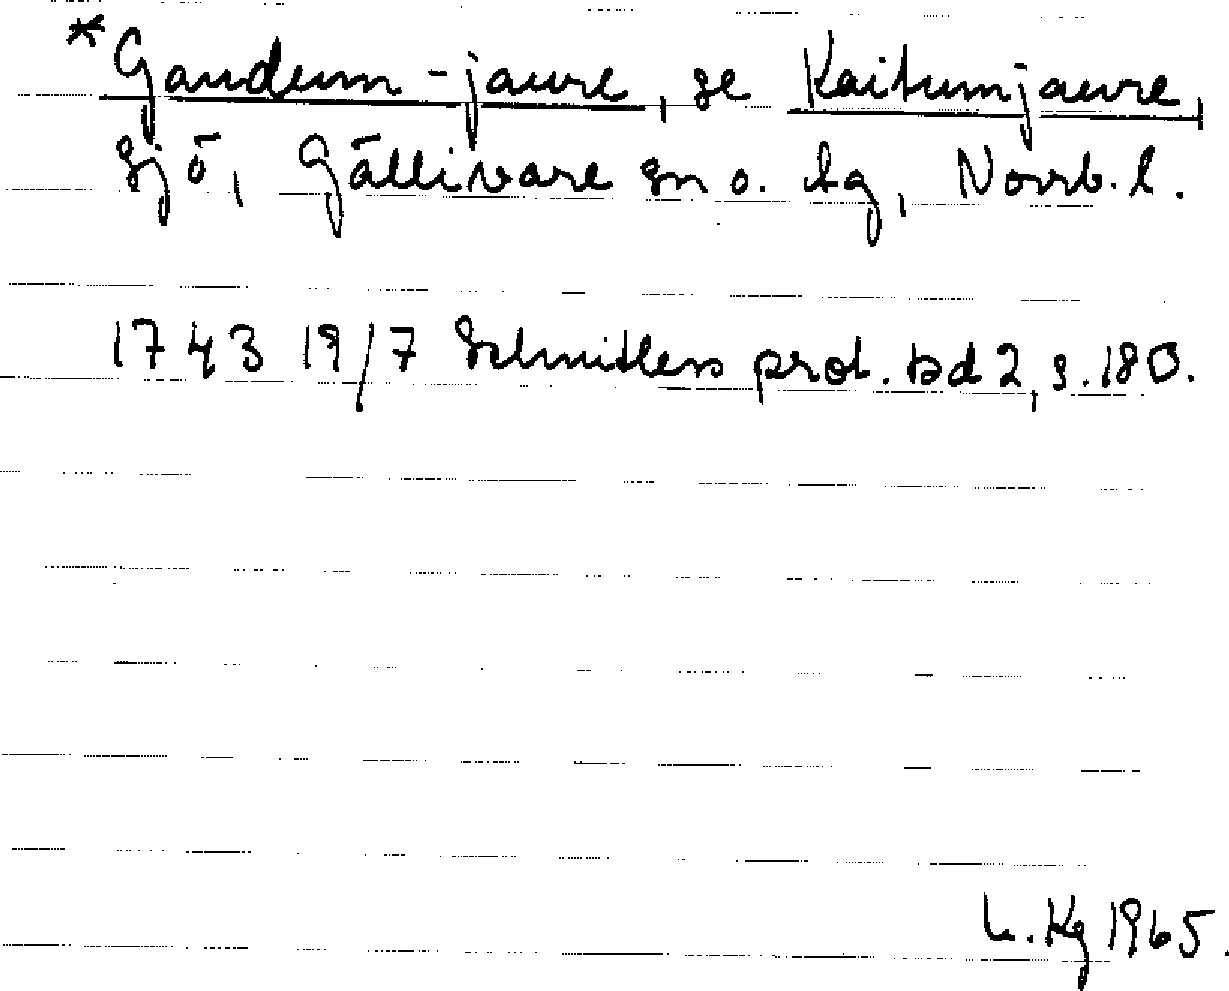 *Gaudum-jaure, se Kaitumjaure,
sjö, Gällivare sn o. tg, Norrb. l.
1743 19/7 Schnitlers prot. bd 2, s. 180.
L. Kg 1965.